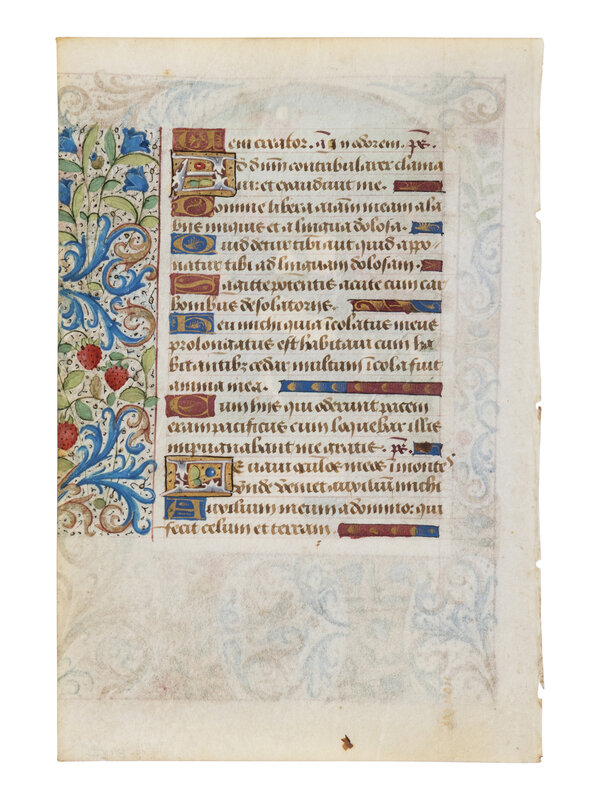 Veni creator. añ In odorem. ps̄.
Ad dn̄m cum tribularer clama
ui: et exaudiuit me.
Domine libera aīam meam a la
biis iniquis et a lingua dolosa.
Quid detur tibi aut quid appo
natur tibi ad linguam dolosam.
Sagitte potentis acute cum car
bonibus desolatoriis.
Heu michi quia īcolatus meus
prolongatus est habitaui cum ha
bitantibꝰ cedar multum īcola fuit
anima mea.
Cum hiis qui oderunt pacem
eram pacificus cum loquebar illis
impugnabant me gratis. ps̄.
Leuaui oculos meos ī montes
vnde veniet auxilium michi
Auxilium meum a domino: qui
fecit celum et terram.